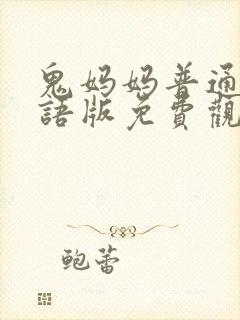 鬼妈妈普通
語版免費觀
鲍蕾